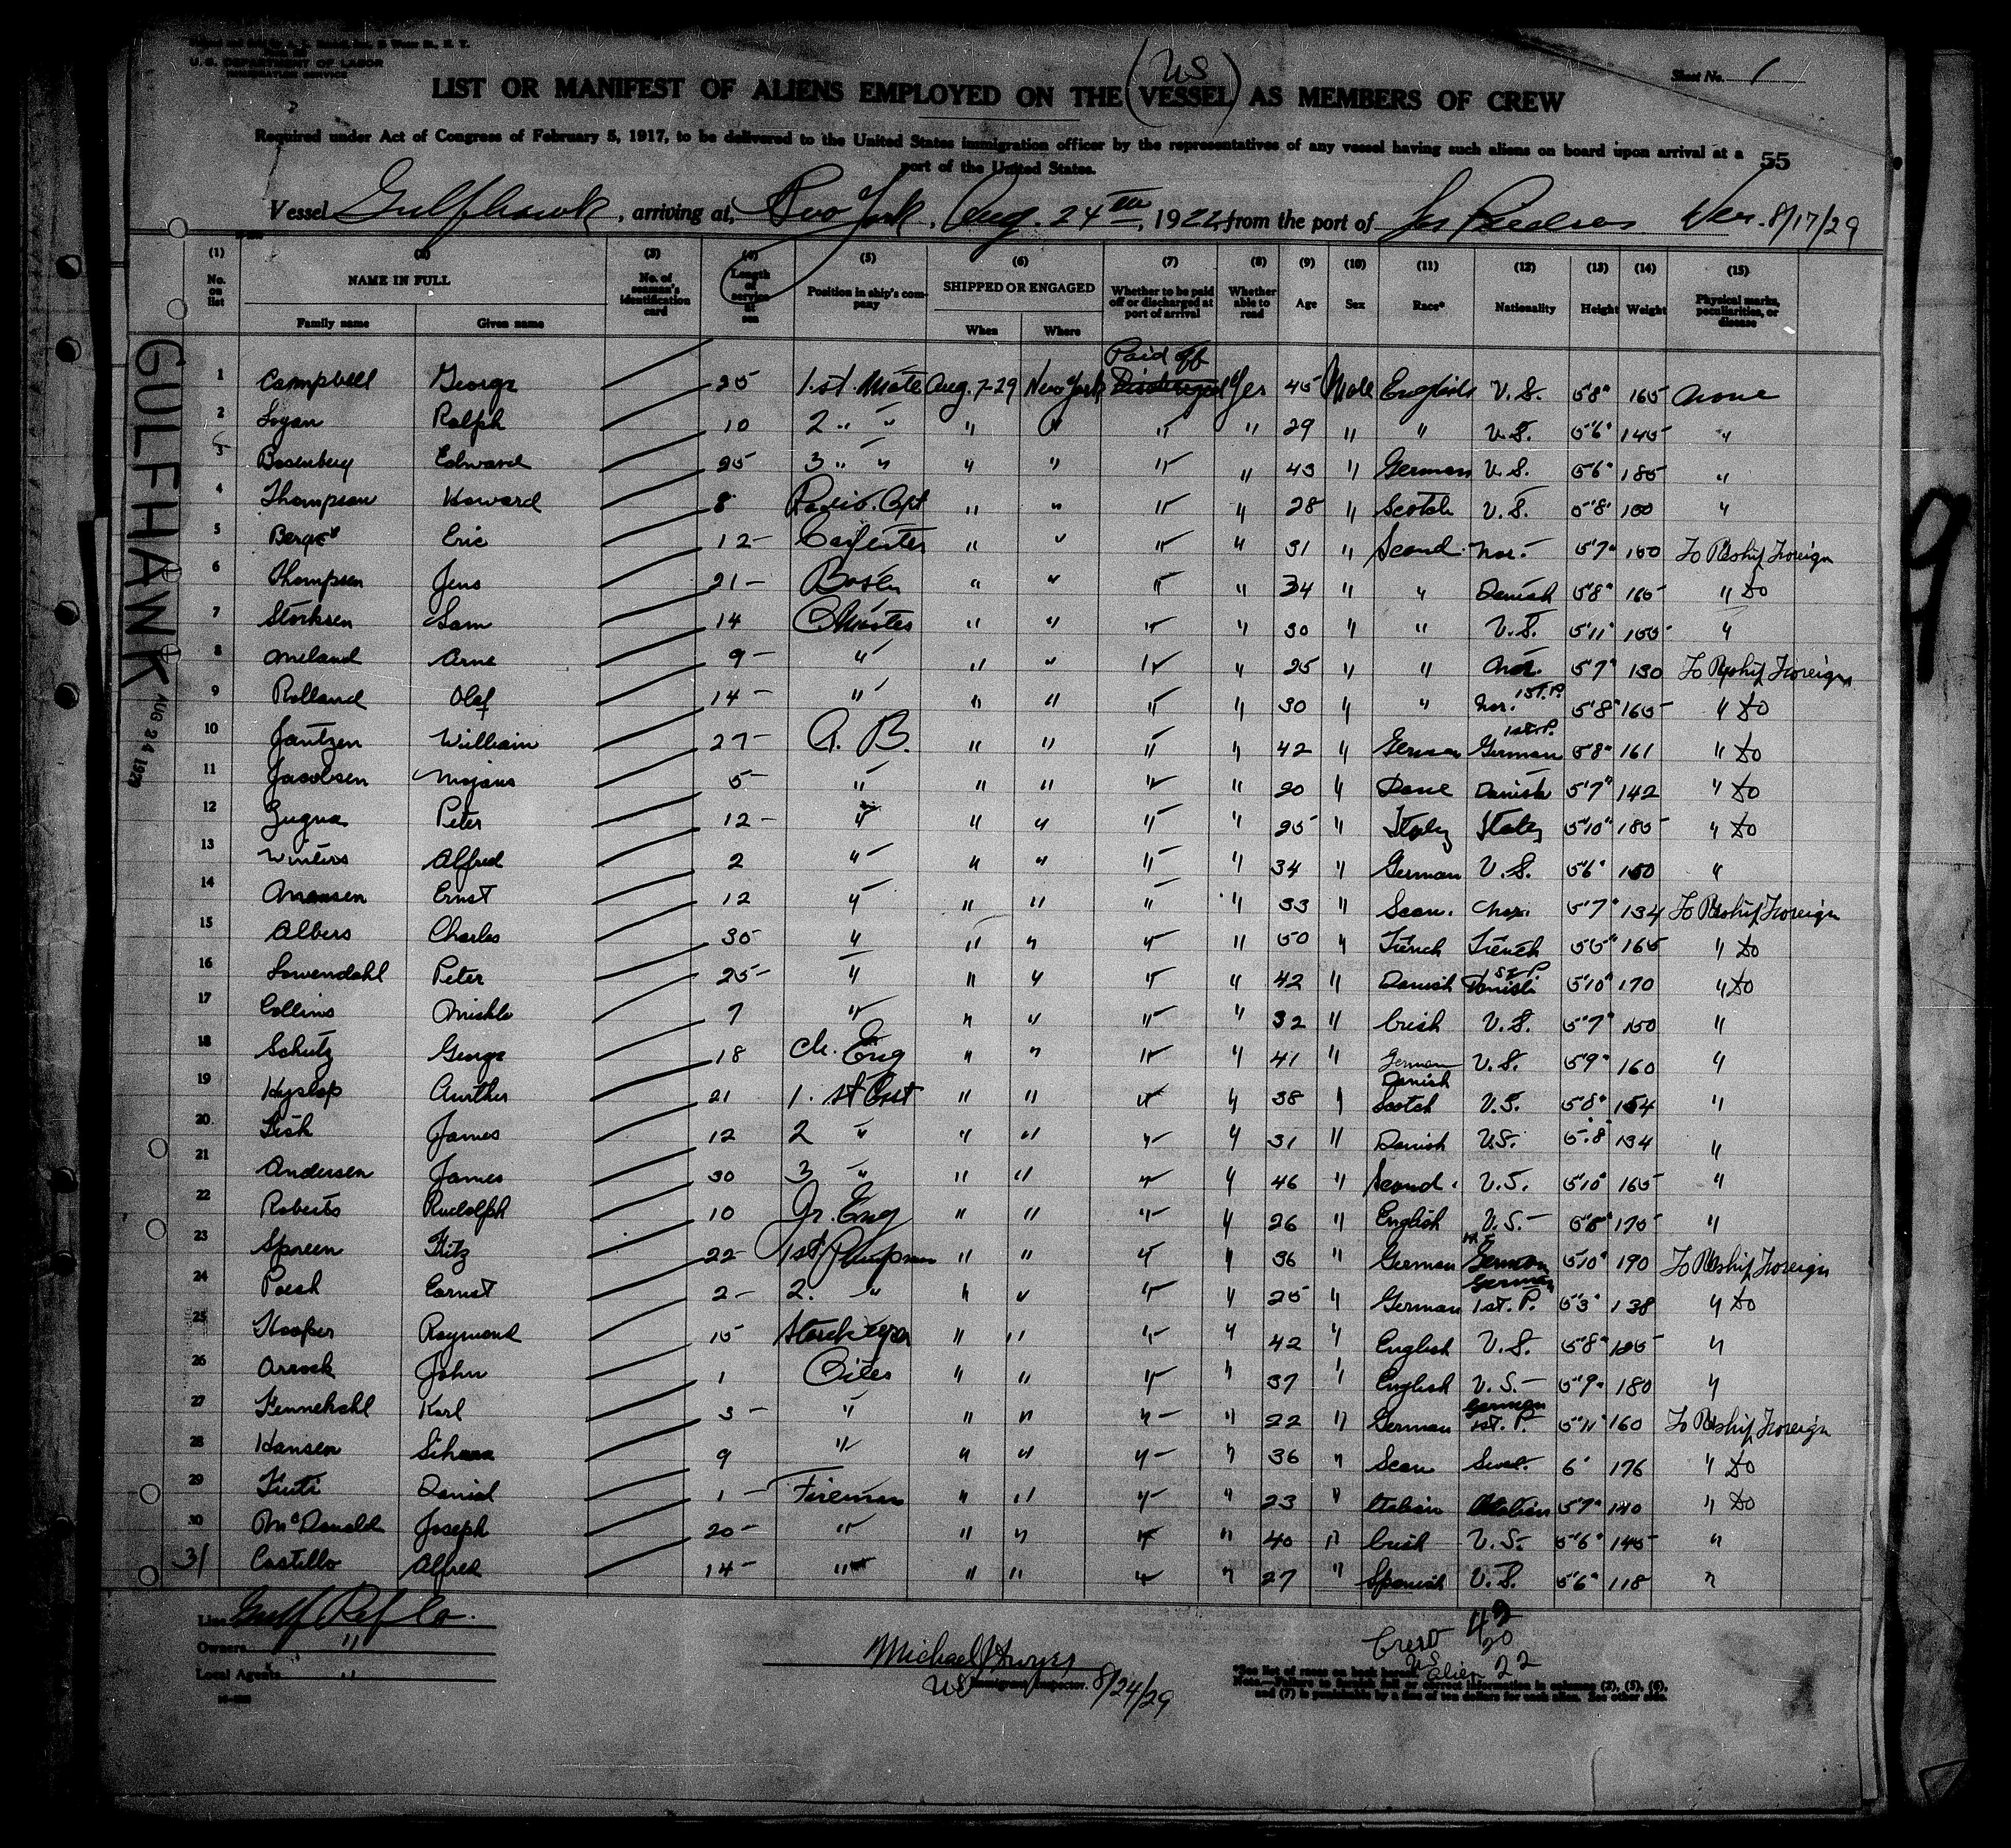 U.S. DEPARTMENT OF LABOR
IMMIGRATION SERVICE
Sheet No. 1
(US)
LIST OR MANIFEST OF ALIENS EMPLOYED ON THE (VESSEL) AS MEMBERS OF CREW
Required under Act of Congress of February 5, 1917, to be delivered to the United States immigration officer by the representatives of any vessel having such aliens on board upon arrival at a
port of the United States.
55
Vessel Gulfhawk, arriving at, New York, Aug. 24th, 1922, from the port of Las Piedras Ven. 8/17/29
(1) (2) (3) (4) (5) (6) (7) (8) (9) (10) (11) (12) (13) (14) (15)
No. on list NAME IN FULL No. of seaman's identification card Length of service at sea Position in ship's company SHIPPED OR ENGAGED Whether to be paid off or discharged at port of arrival Whether able to read Age Sex Race* Nationality Height Weight Physical marks, peculiarities, or disease
Family name Given name When Where
Paid off
1 Campbell George 25 1.st Mate Aug. 7-29 New York Discharged Yes 45 Male English U.S. 5'8" 165 None
2 Logan Ralph 10 2 " " " " " " 29 " " U.S. 5'6" 145 "
3 Edward 25 3 " " " " " " 43 " German U.S. 5'6" 185 "
4 Thompson Howard 8 Radio. Opt " " " " 28 " Scotch U.S. 5'8"  "
5 Eric 12 " " " " 31 " Scand. Nor. 5'7"  To Reship Foreign
6 Thompsen Jens 21 Bosen " " " " 34 " " Danish 5'8" 165 " do
7 Storksen Sam 14 " " " " 30 " " U.S. 5'11" 155 "
8 Meland Arne 9 " " " " " 25 " " Nor. 5'7" 130 To Reship Foreign
9 Rolland Olaf 14 " " " " " 30 " " Nor. 1st. P. 5'8" 165 " do
10 Jantzen William 27 A. B. " " " " 42 " German German 1st. P. 5'8" 161 " do
11 Jacobsen 5 " " " " " 20 " Dane Danish 5'7" 142 " do
12 Peter 12 " " " " " 25 " Italy Italy 5'10" 185 " do
13 Winters Alfred 2 " " " " " 34 " German U.S. 5'6" 150 "
14 Ernst 12 " " " " " 33 " Scan. Nor. 5'7" 134 To Reship Foreign
15 Albers Charles 30 " " " " " 50 " French French 5'5" 165 " do
16 Lowendahl Peter 25 " " " " " 42 " Danish Danish 1st P. 5'10" 170 " do
17 Collins 7 " " " " " 32 " Irish U.S. 5'7" 150 "
18 Schutz George 18 Ch. Eng " " " " 41 " German U.S. 5'9" 160 "
Danish
19 Hyslop Aurther 21 1. st Asst " " " " 38 " Scotch U.S. 5'8" 154 "
20 Fish James 12 2 " " " " " 31 " Danish U.S. 5'8" 134 "
21 Andersen James 30 3 " " " " " 46 " Scand. U.S. 5'10" 165 "
22 Roberts Rudolph 10 Jr. Eng " " " " 26 " English U.S. 5'8" 175 "
23 Spreen Fitz 22 1st Pumpman " " " " 36 " German German 5'10" 190 To Reship Foreign
24 Posh Earnst 2 2. " " " " " 25 " German German 1st. P. 5'3" 138 " do
25 Hooper Raymond 15 Storekeeper " " " " 42 " English U.S. 5'8"  "
26 John 1 Oiler " " " " 37 " English U.S. 5'9" 180 "
27 Karl 3 " " " " " 22 " German German 1st. P. 5'11" 160 To Reship Foreign
28 Hansen 9 " " " " " 36 " Scan Swed. 6' 176 " do
29 Daniel 1 Fireman " " " " 23 " Italian Italian 5'7" 140 " do
30 McDonald Joseph 20 " " " " " 40 " Irish U.S. 5'6" 145 "
31 Castillo Alfred 14 " " " " " 27 " Spanish U.S. 5'6" 118 "
GULFHAWK AUG 24 1929
9
Line Gulf Ref Co.
Owners "
Local Agents "
Michael J
US Immigrant Inspector. 8/24/29
Crew 42
US 20
Alien 22
*See list of races on back hereof.
Note.—Failure to furnish full or correct information in columns (3), (5), (6),
and (7) is punishable by a fine of ten dollars for each alien. See other side.